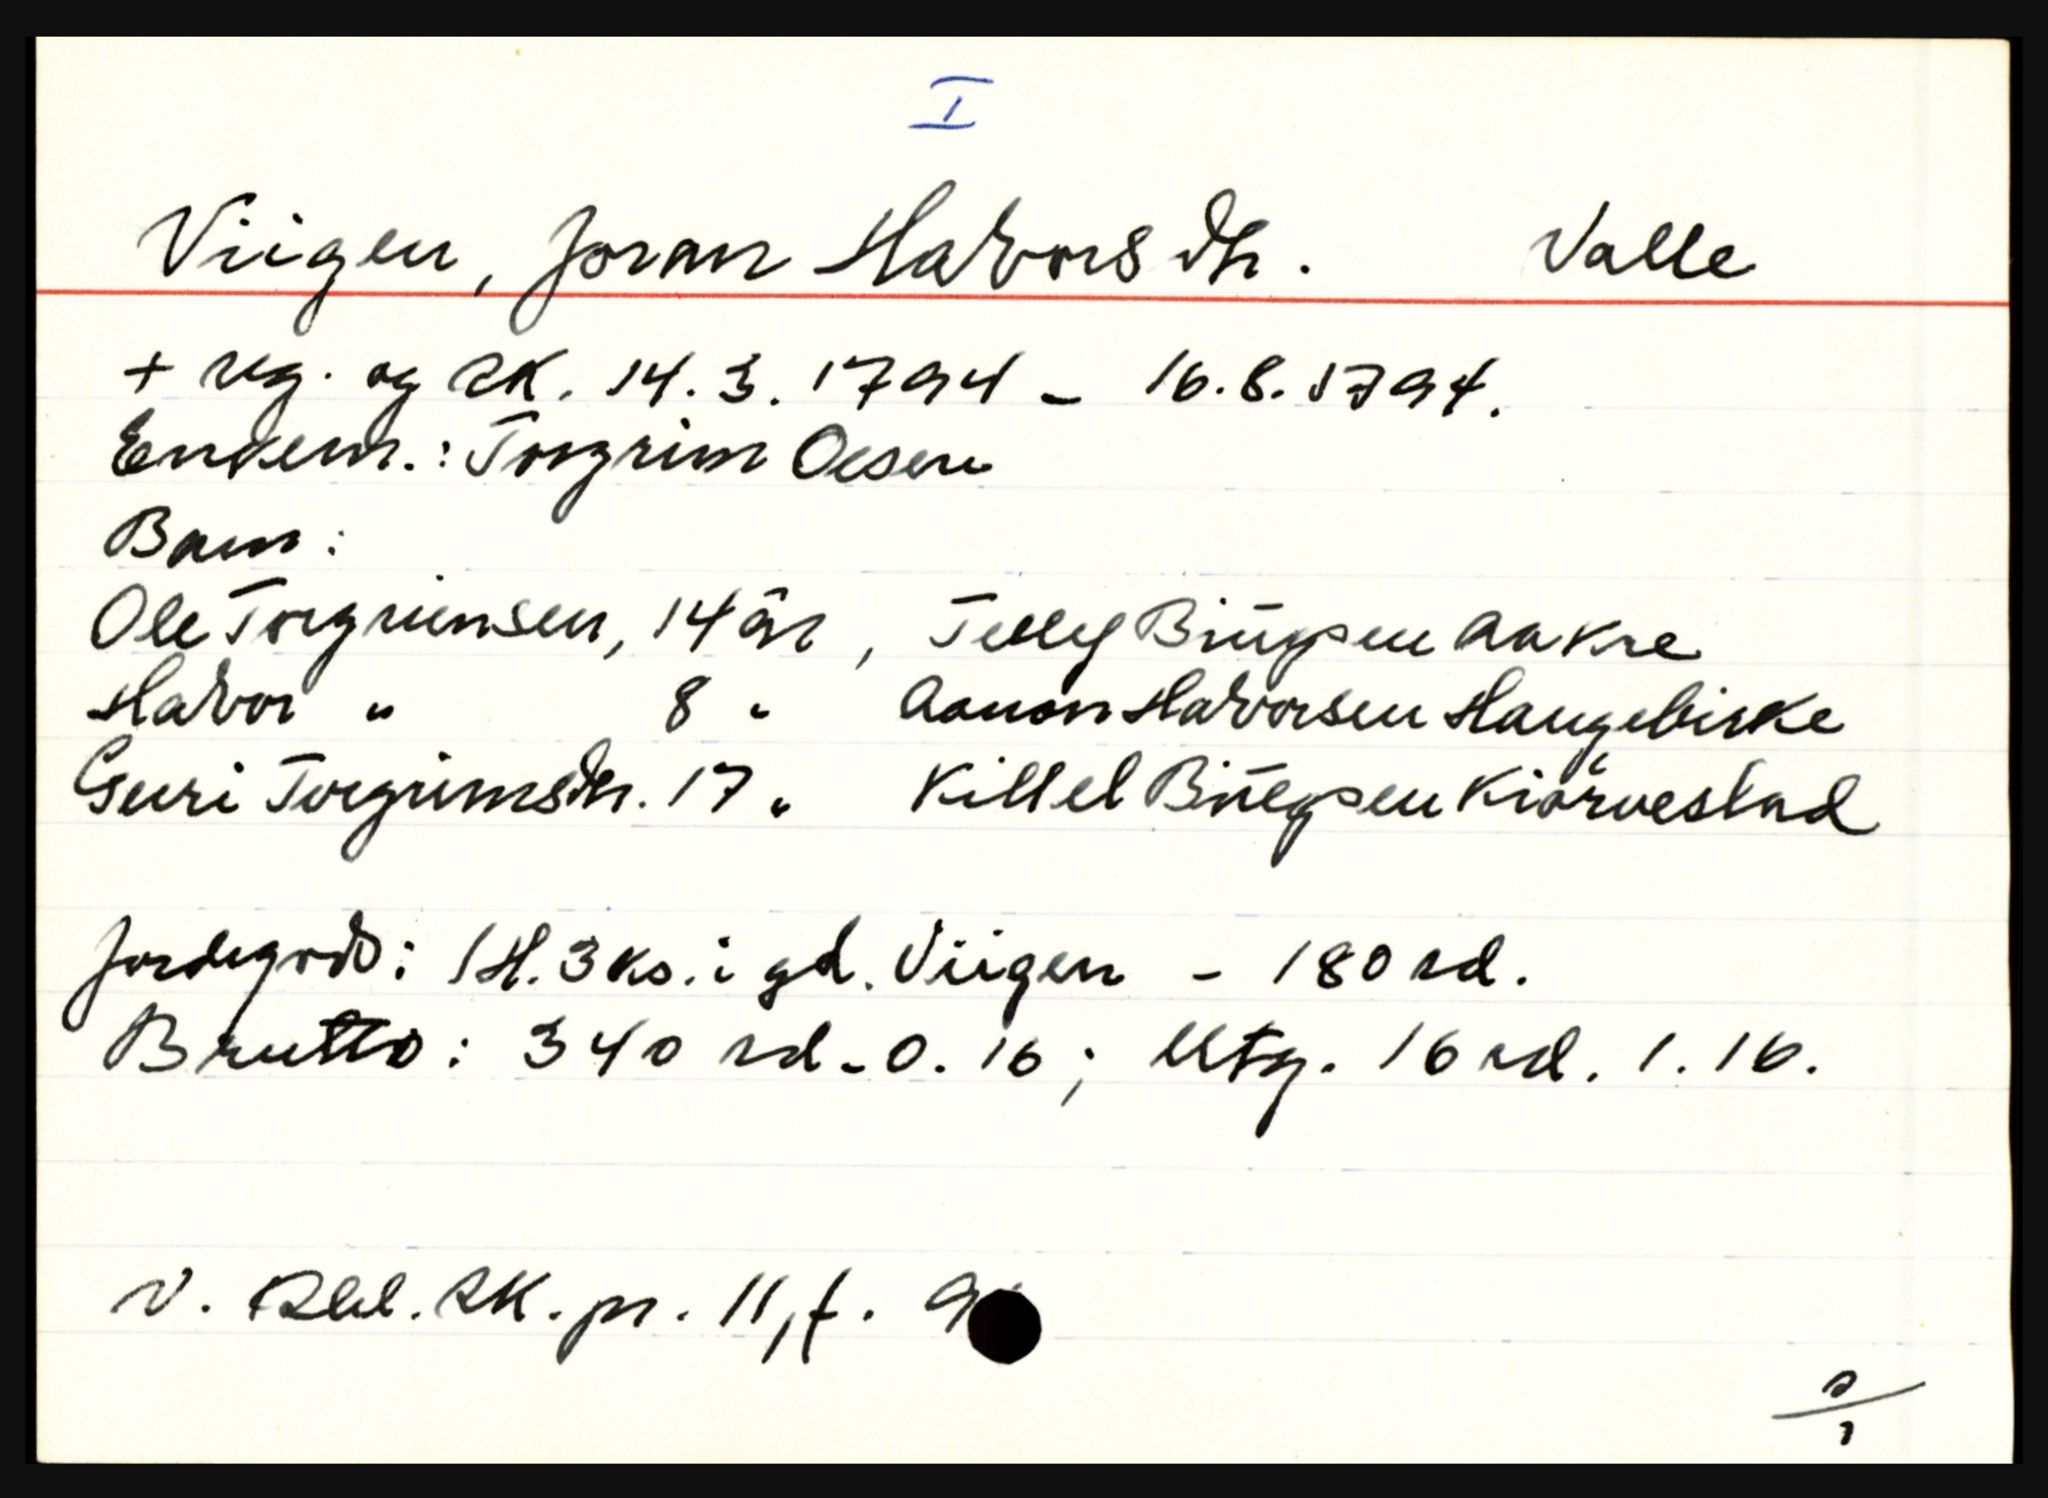 I
Viigen, Joran Halvorsdtr. Valle
+ Reg. og SK. 14.3.1794 - 16.8.1794.
Enkem.: Torgrim Olsen
Barn:
Ole Torgrimsen, 14 år, Tellef Birgesen Aakre
Halvor " 8 " Aanon Halvorsen Haugebirke
Guri Torgrimsdtr. 17 " Killel Kiörvestad
Jordegods: 1 H. 3 ks. i gd. Viigen - 180 rd.
Brutto: 340 rd - 0. 16; Utg. 16 rd. 1. 16.
V. Rbl. SK. pr. 11, f. 9
2/1